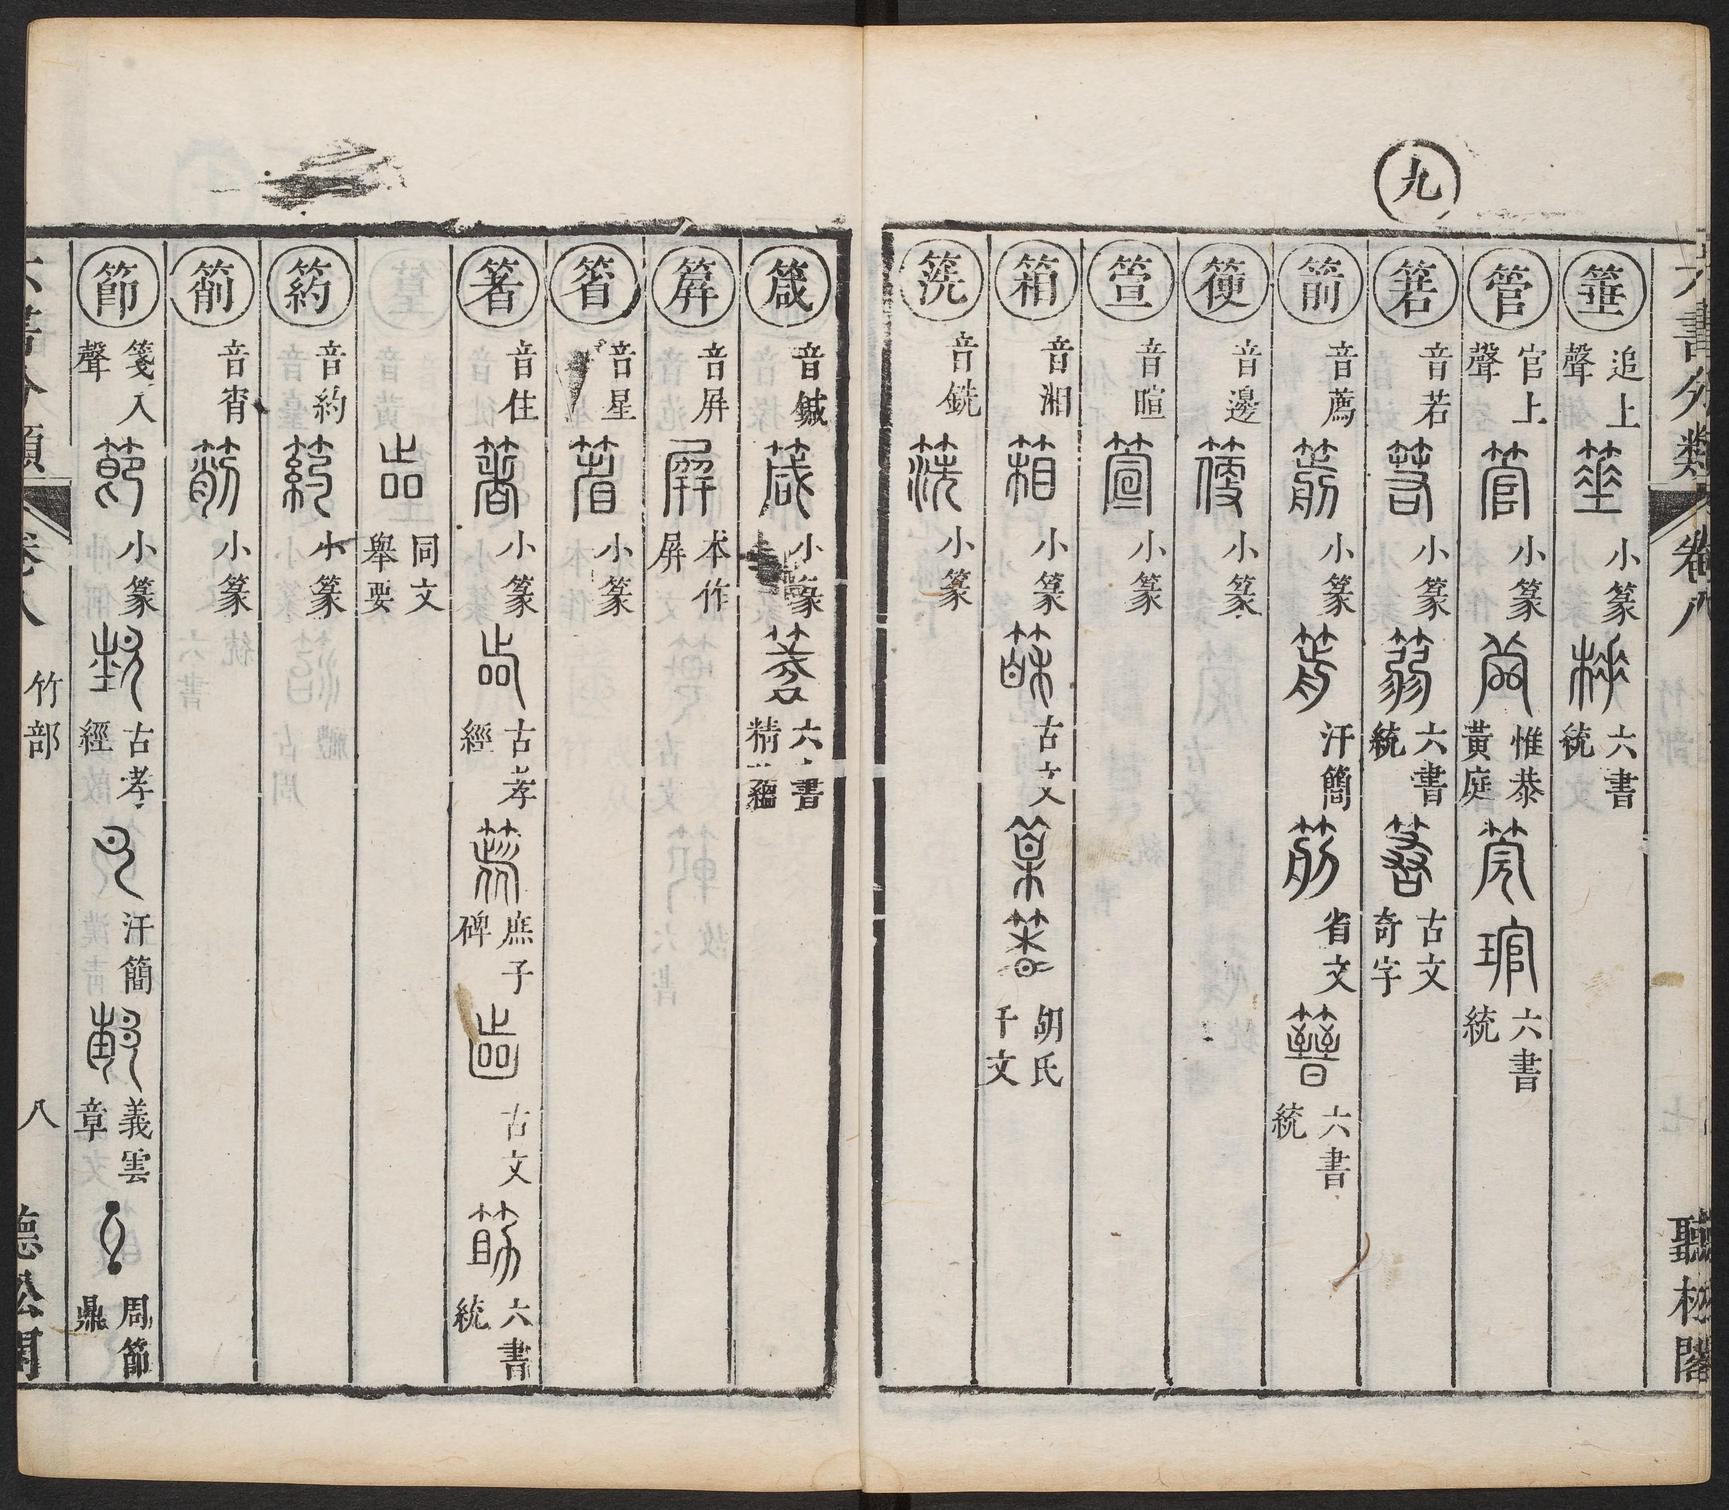 九
六書分類 卷八
聽松閣
箠 追上聲 小篆 六書統
管 官上聲 小篆 惟恭黃庭 六書統
箬 音若 小篆 六書統 古文奇字
箭 音薦 小篆 汗簡 省文 六書統
音邊 小篆
音暄 小篆
箱 音湘 小篆 古文 胡氏千文
筅 音銑 小篆
箴 音鍼 小篆 六書精蘊
音屏 本作屏
音星 小篆
箸 音住 小篆 古孝經 庶子碑 古文 六書統
同文舉要
箹 音約 小篆
箾 音宵 小篆
節 箋入聲 小篆 古孝經 汗簡 義雲章 周節鼎
六書分類 卷八 竹部 八 聽松閣